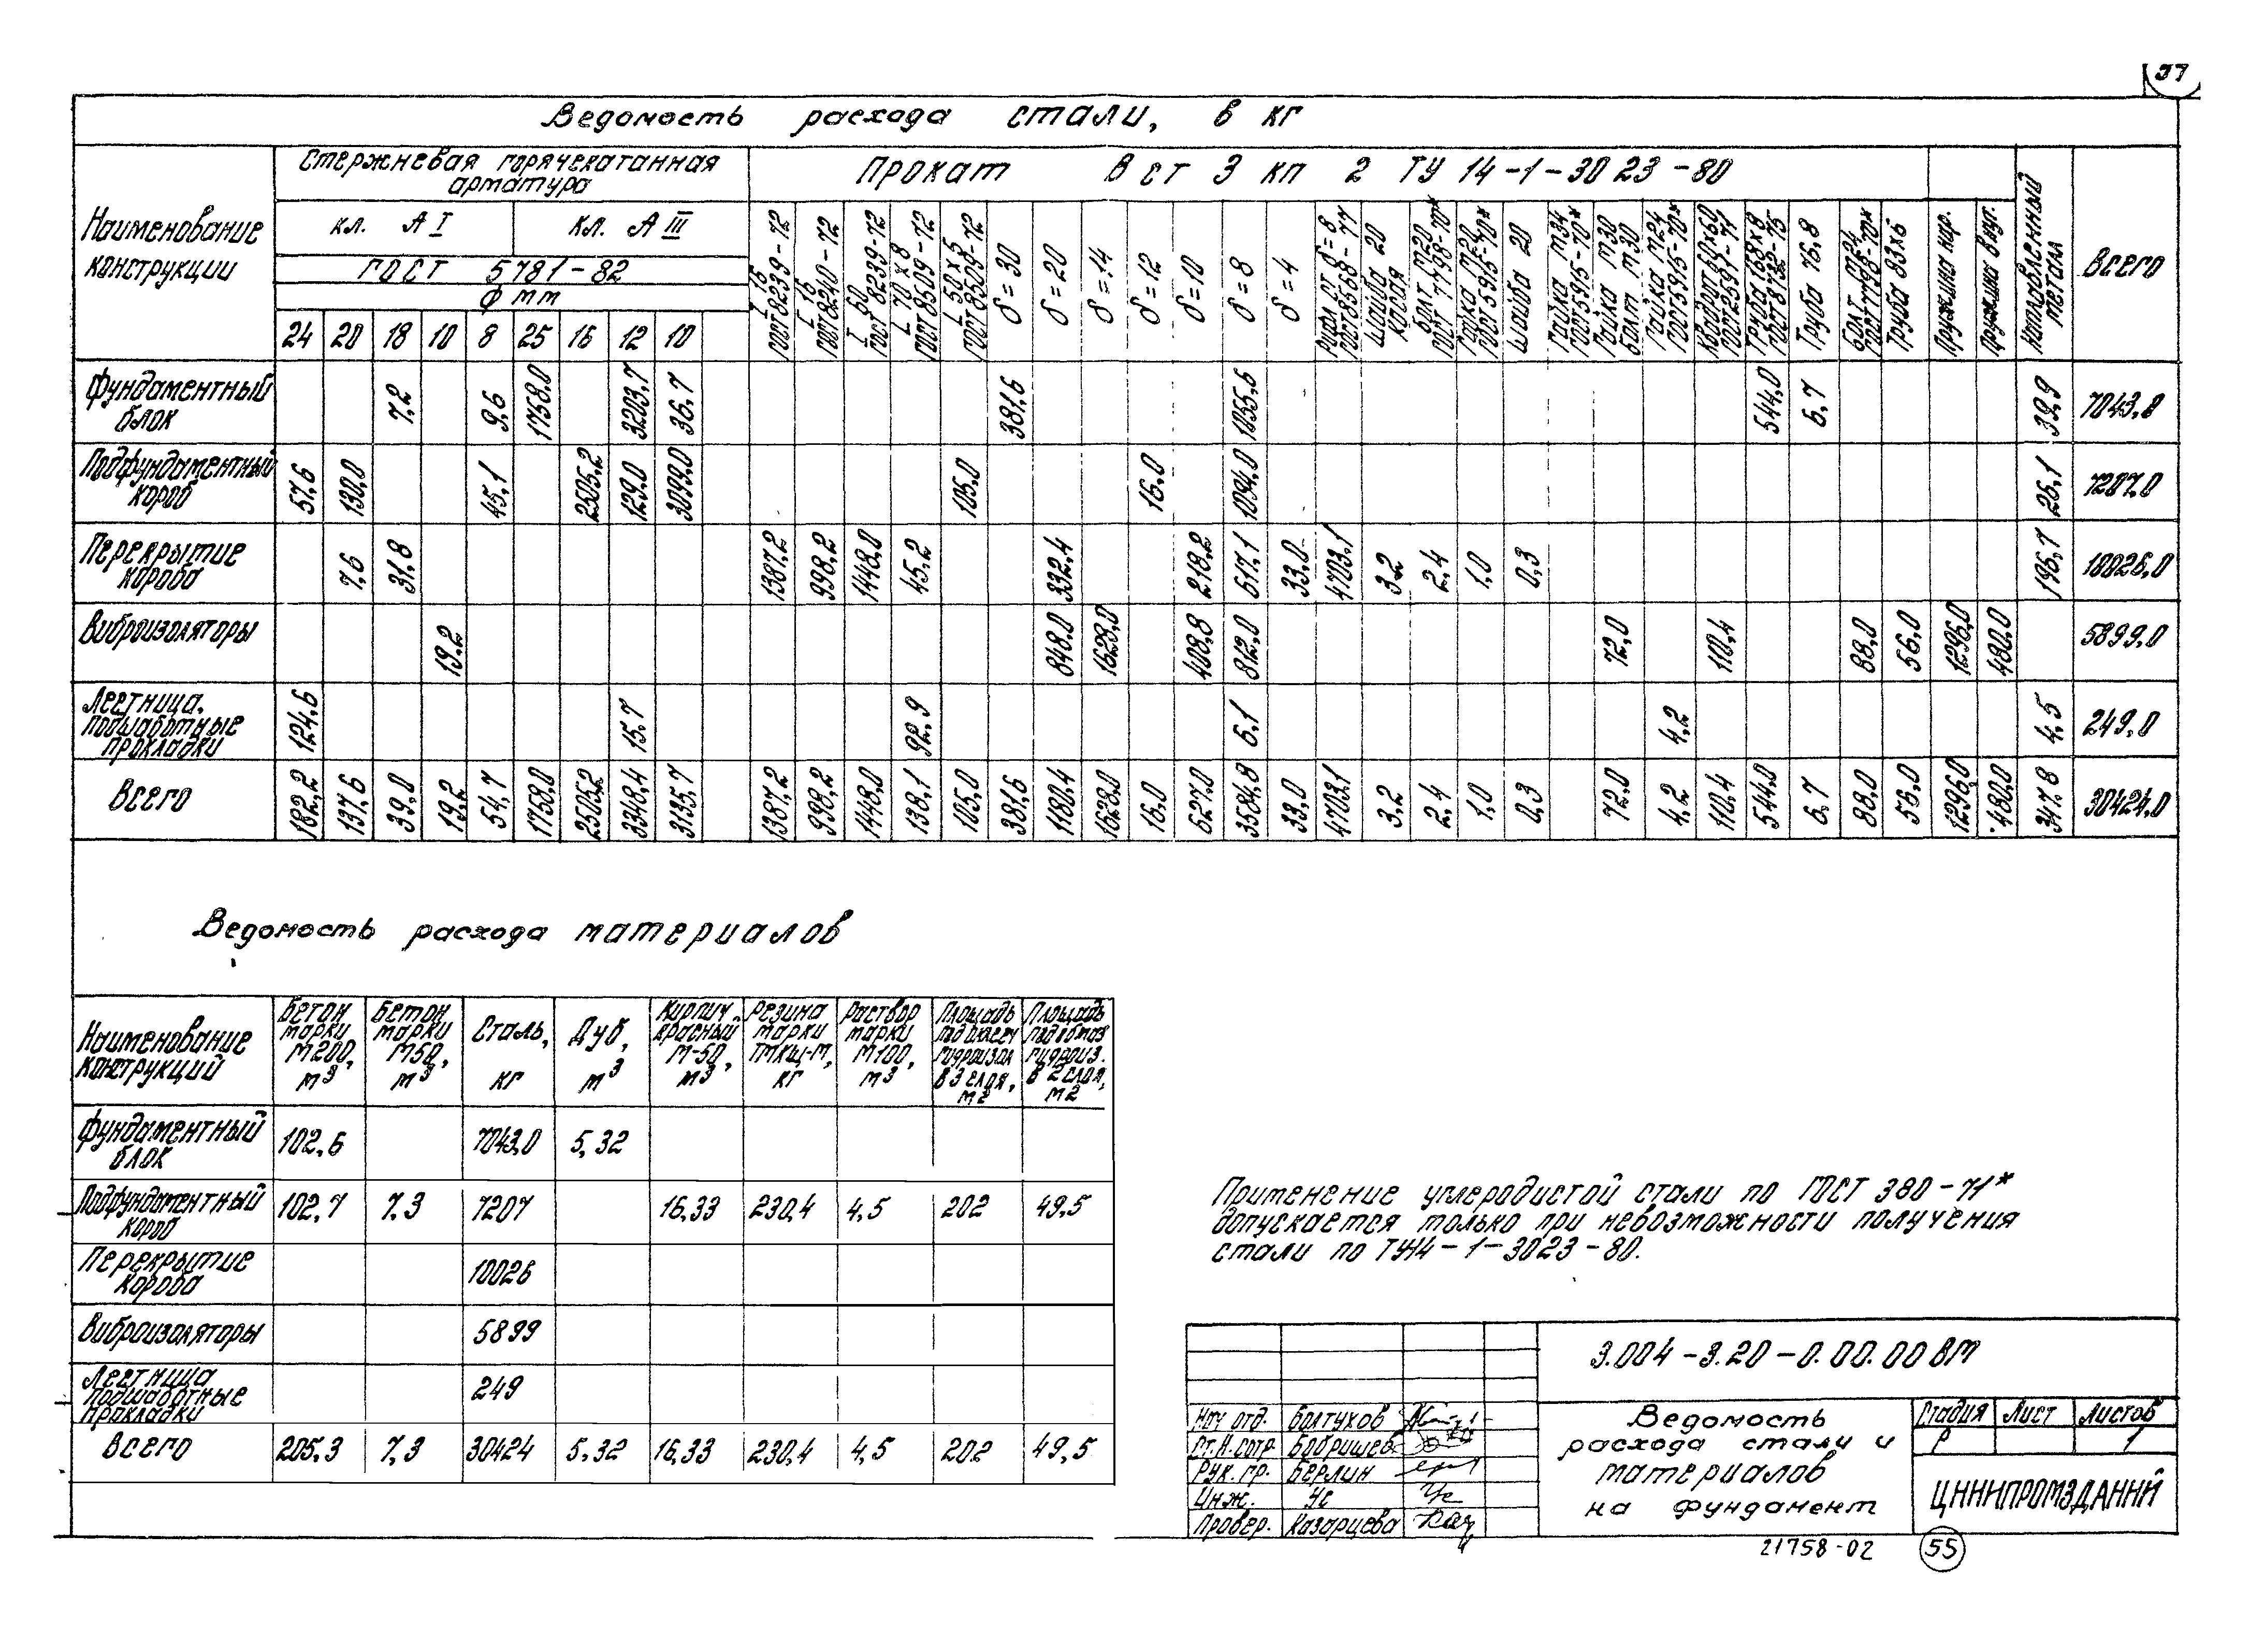 57
Ведомость расхода стали, в кг
Наименование конструкции
Стержневая горячекатанная арматура
Прокат В ст 3 кп 2 ТУ 14-1-3023-80
Наплавленный металл
Всего
кл. А I
Кл. А III
ГОСТ 5781-82
Ф мм
24 20 18 10 8 25 16 12 10
I 16 ГОСТ 8239-72
[ 16 ГОСТ 8240-72
I 60 ГОСТ 8239-72
L 70×8 ГОСТ 8509-72
L 50×5 ГОСТ 8509-72
δ=30
δ=20
δ=14
δ=12
δ=10
δ=8
δ=4
Рифл. ст δ=8 ГОСТ 8568-77
Шайба 20 косая
Болт М20 ГОСТ 7798-70*
Гайка М20 ГОСТ 5915-70*
Шайба 20
Гайка М34 ГОСТ 5915-70*
Гайка М30 болт М30
Гайка М24 ГОСТ 5915-70*
Квадрат 60×60 ГОСТ 2591-71
Труба 168×8 ГОСТ 8732-75
Труба 76,8
Болт М24 ГОСТ 7798-70*
Труба 83×6
Пружина нар.
Пружина внут.
Фундаментный блок 7,2 9,6 1758,0 3203,7 36,7 381,6 1055,6 544,0 6,7 39,9 7043,8
Подфундаментный короб 57,6 130,0 45,1 2505,2 129,0 3099,0 105,0 16,0 1094,0 26,1 7207,0
Перекрытие короба 7,6 31,8 1387,2 998,2 1448,0 45,2 332,4 218,2 617,1 33,0 4703,1 3,2 2,4 1,0 0,3 196,7 10026,0
Виброизоляторы 19,2 848,0 1628,0 408,8 812,0 72,0 110,4 88,0 56,0 1296,0 480,0 5899,0
Лестница, подшаботные прокладки 124,6 15,7 92,9 6,1 4,2 4,5 249,0
Всего 182,2 137,6 39,0 19,2 54,7 1758,0 2505,2 3348,4 3135,7 1387,2 998,2 1448,0 138,1 105,0 381,6 1180,4 1628,0 16,0 627,0 3584,8 33,0 4703,1 3,2 2,4 1,0 0,3 72,0 4,2 110,4 544,0 6,7 88,0 56,0 1296,0 480,0 347,8 30424,0
Ведомость расхода материалов
Наименование конструкций
Бетон марки М200, м3
Бетон марки М50, м3
Сталь, кг
Дуб, м3
Кирпич красный М-50, м3
Резина марки ТМКЩ-М, кг
Раствор марки М100, м3
Площадь гидроизол в 3 слоя, м2
Площадь гидроиз. в 2 слоя, м2
Фундаментный блок 102,6 7043,0 5,32
Подфундаментный короб 102,7 7,3 7207 16,33 230,4 4,5 202 49,5
Перекрытие короба 10026
Виброизоляторы 5899
Лестница подшаботные прокладки 249
Всего 205,3 7,3 30424 5,32 16,33 230,4 4,5 202 49,5
Применение углеродистой стали по ГОСТ 380-71*
допускается только при невозможности получения
стали по ТУ14-1-3023-80.
3.004-3.20-0.00.00 ВМ
Нач отд. Болтухов
Ст.н.сотр. Бобришев
Рук. гр. Берлин
Инж. Ус
Провер. Казарцева
Ведомость
расхода стали и
материалов
на фундамент
Стадия Лист Листов
Р 1
ЦНИИПРОМЗДАНИЙ
21758-02 55